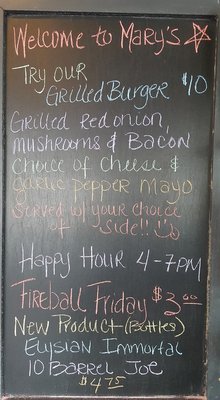 Welcome to Mary's
Try our
Grilled Burger $10
Grilled Red onion,
mushrooms & Bacon
Choice of Cheese &
garlic pepper mayo
Served w/ your choice
of side!!
Happy Hour 4-7PM
Fireball Friday $3.00
New Product (Bottles)
Elysian Immortal
10 Barrel Joe
$4.75